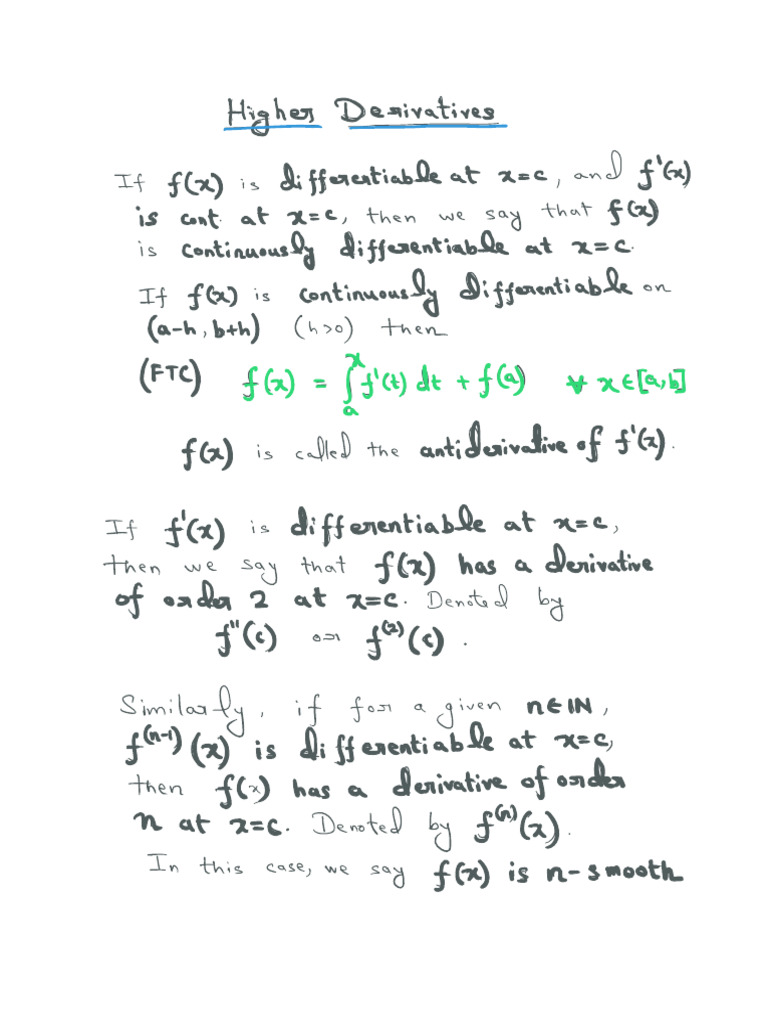 Higher Derivatives
If f(x) is differentiable at x=c, and f'(x)
is cont. at x=c, then we say that f(x)
is continuously differentiable at x=c.
If f(x) is continuously differentiable on
(a-h, b+h) (h>0) then
(FTC) f(x) = ∫ₐˣ f'(t) dt + f(a) ∀ x∈[a,b]
f(x) is called the antiderivative of f'(x).
If f'(x) is differentiable at x=c,
then we say that f(x) has a derivative
of order 2 at x=c. Denoted by
f''(c) or f⁽²⁾(c).
Similarly, if for a given n∈ℕ,
f⁽ⁿ⁻¹⁾(x) is differentiable at x=c,
then f(x) has a derivative of order
n at x=c. Denoted by f⁽ⁿ⁾(x).
In this case, we say f(x) is n-smooth